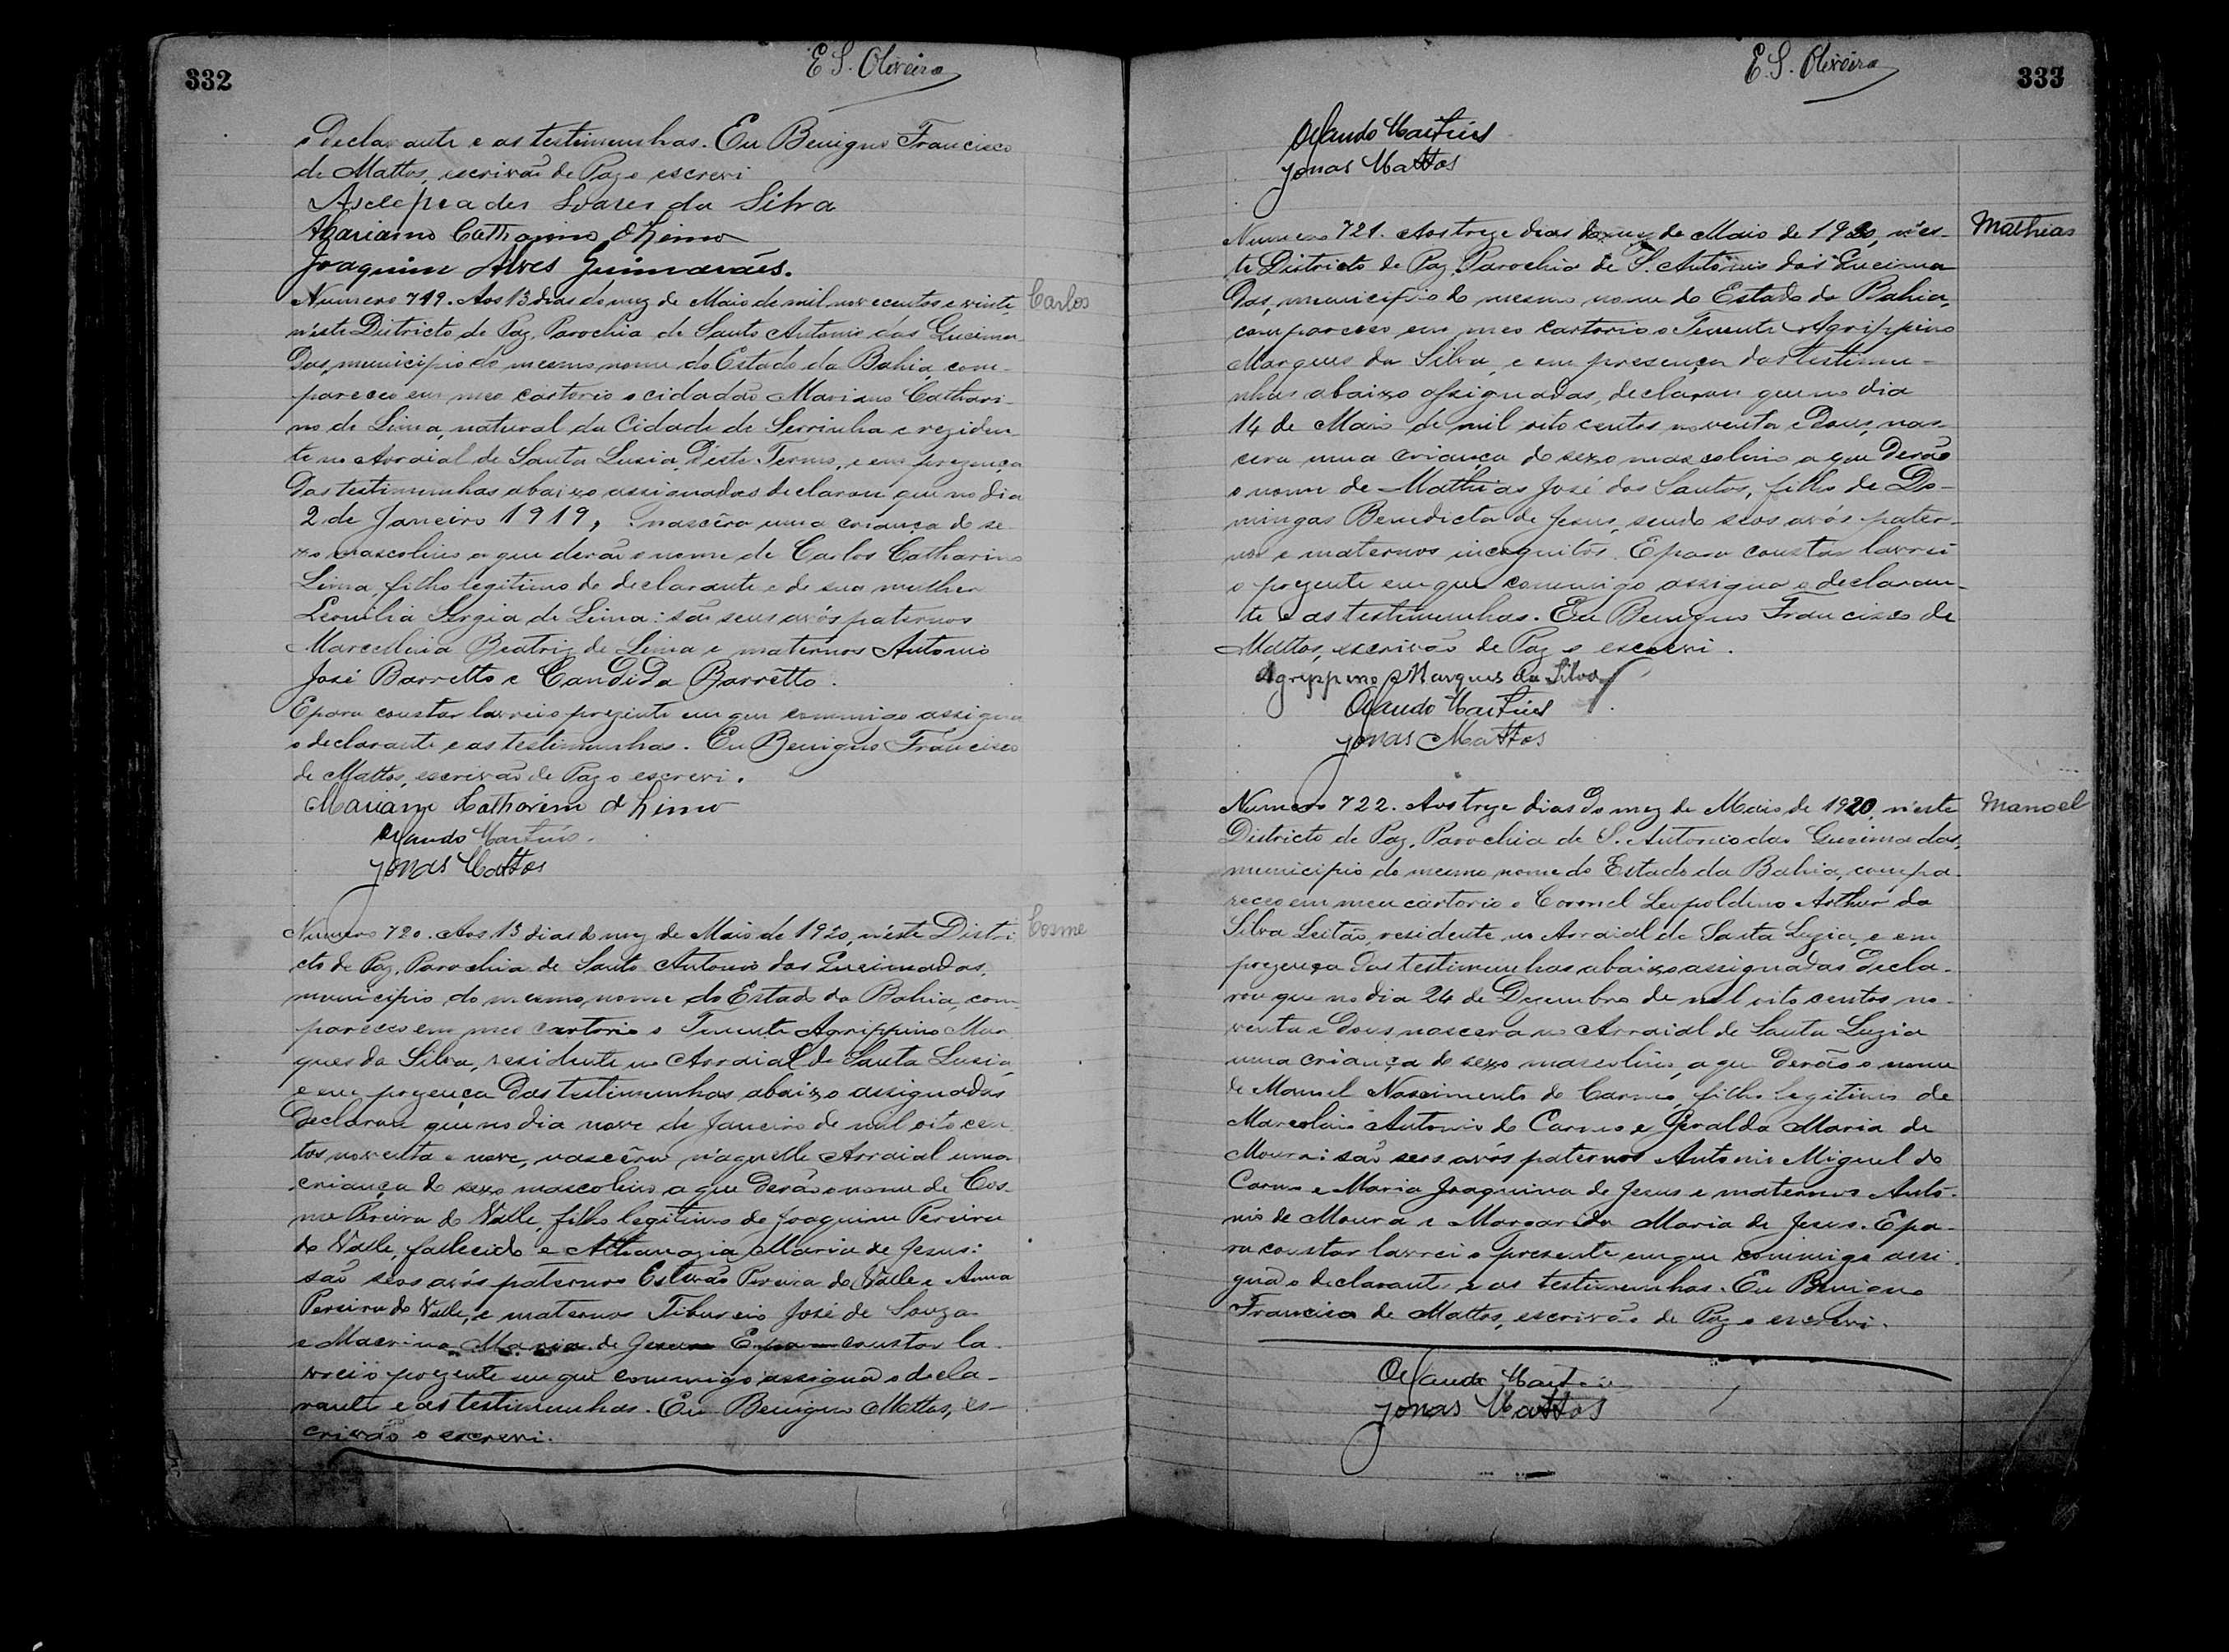 332
E S. Oliveira
o declarante e as testimunhas. Eu Benigno Francisco
de Mattos, escrivão de Paz o escrevi
Asclepiades Soares da Silva
Mariano Catharino d Lima
Joaquim Alves Guimarães.
Numero 719. Aos 13 dias do mez de Maio de mil novecentos e vinte,
n'este Districto de Paz, Parochia de Santo Antonio das Queima-
das, municipio do mesmo nome do Estado da Bahia, com-
pareceo em meo cartorio o cidadão Mariano Cathari-
no de Lima, natural da Cidade de Serrinha e reziden-
te no Arraial de Santa Luzia, d'este Termo, e em prezença
das testimunhas abaixo assignadas declarou que no dia
2 de Janeiro 1919, nascêra uma criança do se-
xo mascolino a que derão o nome de Carlos Catharino
Lima, filho legitimo do declarante e de sua mulher
Leonilia Sergia de Lima: são seus avós paternos
Marcellina Beatriz de Lima e maternos Antonio
José Barretto e Candida Barrêtto.
E para constar lavrei o prezente em que commigo assigna
o declarante e as testimunhas. Eu Benigno Francisco
de Mattos, escrivão de Paz o escrevi.
Mariano Catharino d Lima
Orlando Martins
Jonas Mattos
Carlos
Numero 720. Aos 13 dias do mez de Maio de 1920, n'este Distri-
cto de Paz, Parochia de Santo Antonio das Queimadas,
municipio do mesmo nome do Estado da Bahia, com-
pareceo em meo cartorio o Tenente Agrippino Mar-
ques da Silva, residente no Arraial de Santa Luzia,
e em prezença das testimunhas abaixo assignadas
declarou que no dia nove de Janeiro de mil oito cen-
tos noventa e nove, nascêra n'aquelle Arraial uma
criança do sexo mascolino a que derão o nome de Cos-
me Pereira do Valle, filho legitimo de Joaquim Pereira
do Valle, fallecido e Athanazia Maria de Jesus:
são seos avós paternos Estevão Pereira do Valle e Anna
Pereira do Valle, e maternos Tiburcio José de Souza
e Macrina Maria de Jesus E para constar la-
vrei o prezente em que commigo assigna o decla-
rante e as testimunhas. Eu Benigno Mattos, es-
crivão o escrevi.
Cosme
E. S. Oliveira
333
Orlando Martins
Jonas Mattos
Numero 721. Aos treze dias do mez de Maio de 1920, n'es-
te Districto de Paz, Parochia de S. Antonio das Queima-
das, municipio do mesmo nome do Estado da Bahia,
compareceo em meo cartorio o Tenente Agrippino
Marques da Silva, e em presença das testimu-
nhas abaixo assignadas, declarou que no dia
14 de Maio de mil oito centos noventa e dous, nas-
cera uma criança do sexo mascolino a que derão
o nome de Mathias José dos Santos, filho de Do-
mingas Benedicta de Jesus, sendo seos avós pater-
nos e maternos incognitos. E para constar lavrei
o prezente em que commigo assigna o declaran-
te e as testimunhas. Eu Benigno Francisco de
Mattos, escrivão de Paz o escrevi.
Agrippino Marques da Silva
Orlando Martins
Jonas Mattos
Mathias
Numero 722. Aos treze dias do mez de Maio de 1920, n'este
Districto de Paz, Parochia de S. Antonio das Queimadas,
municipio do mesmo nome do Estado da Bahia, compa-
receo em meu cartorio o Coronel Leopoldino Arthur da
Silva Leitão, residente no Arraial de Santa Luzia, e em
prezença das testimunhas abaixo assignadas decla-
rou que no dia 24 de Dezembro de mil oito centos no-
venta e dous nascera no Arraial de Santa Luzia
uma criança do sexo mascolino, a que derão o nome
de Manoel Nascimento do Carmo, filho legitimo de
Marcolino Antonio do Carmo e Geralda Maria de
Moura: são seos avós paternos Antonio Miguel do
Carmo e Maria Joaquina de Jesus e maternos Anto-
nio de Moura e Margarida Maria de Jesus. E pa-
ra constar lavrei o presente em que commigo assi-
gna o declarante e as testimunhas. Eu Benigno
Francisco de Mattos, escrivão de Paz o escrevi.
Orlando Martins
Jonas Mattos
Manoel